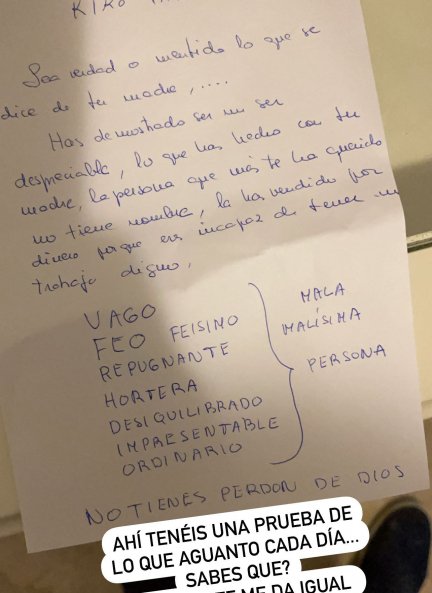 KIKO
Sea verdad o mentida lo que se
dice de tu madre, ....
Has demostrado ser un ser
despreciable, lo que has hecho con tu
madre, la persona que más te ha querido
no tiene nombre, la has vendido por
dinero porque eres incapaz de tener un
trabajo digno,
VAGO
FEO FEISIMO
REPUGNANTE
HORTERA
DESIQUILIBRADO
IMPRESENTABLE
ORDINARIO
MALA
MALÍSIMA
PERSONA
NO TIENES PERDON DE DIOS
AHÍ TENÉIS UNA PRUEBA DE
LO QUE AGUANTO CADA DÍA...
SABES QUE?
ME DA IGUAL